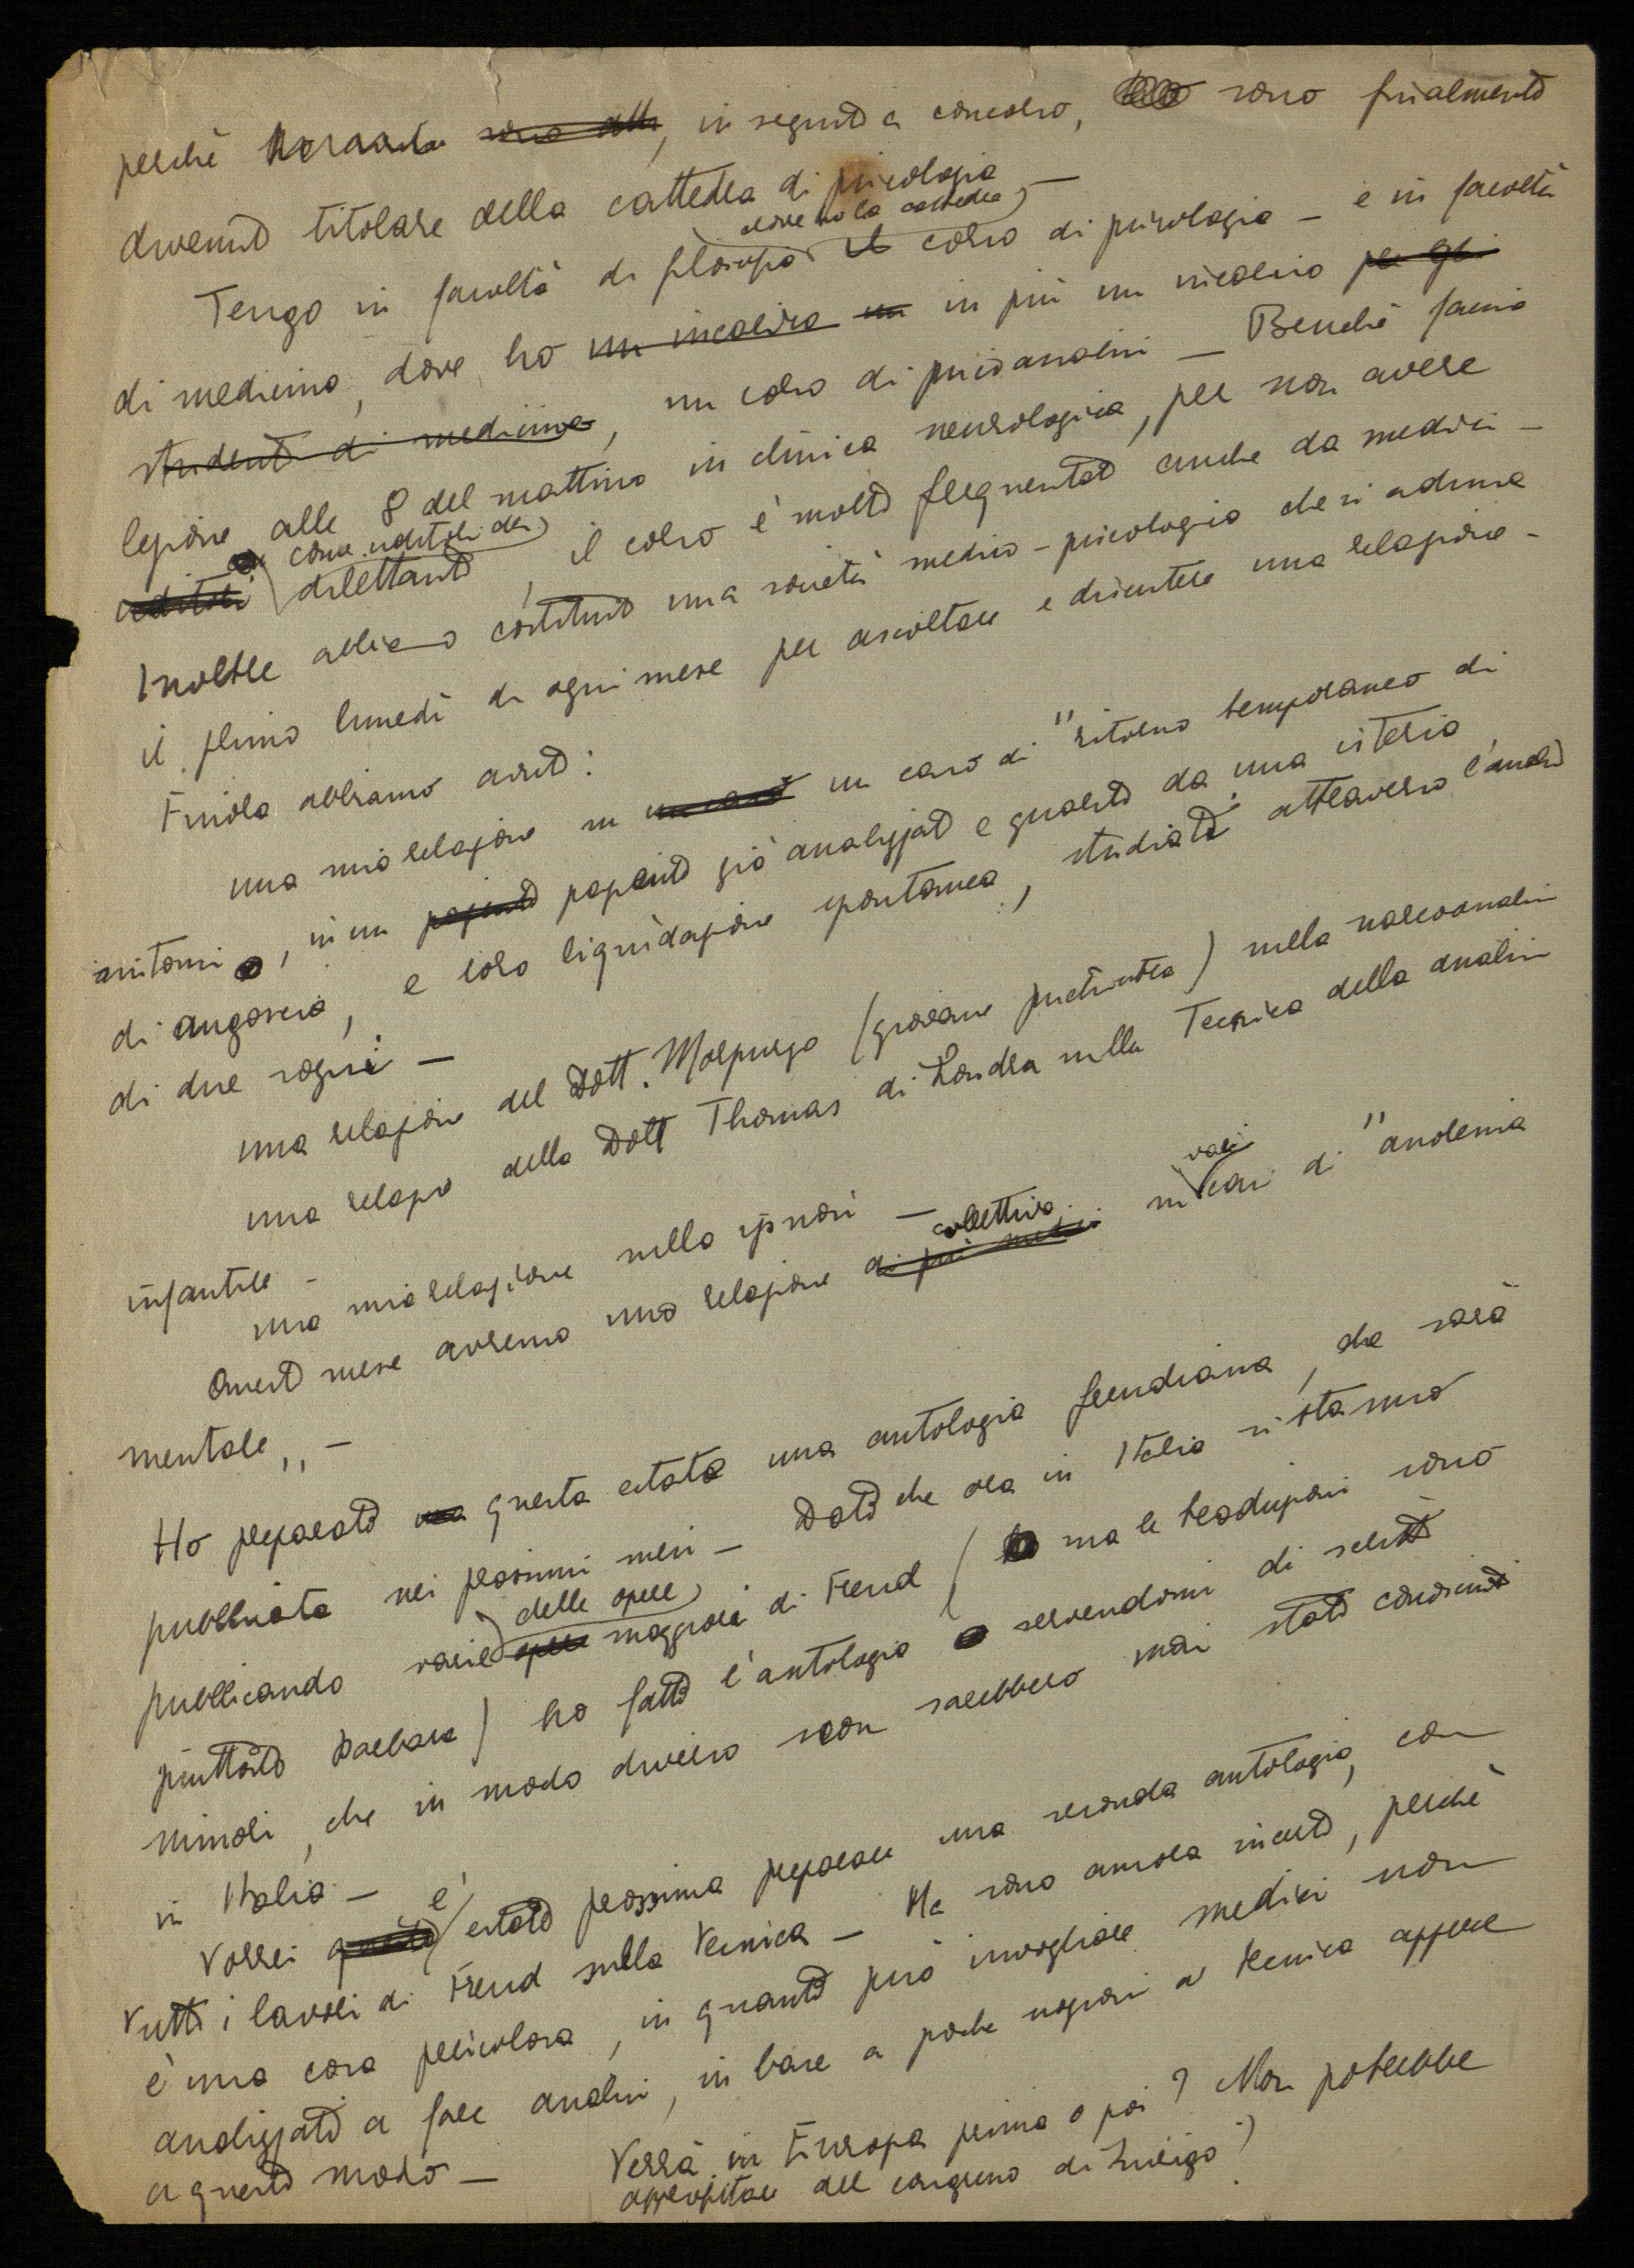 perchè sono att, in seguito a concorso, sono finalmente
divenuto titolare della cattedra di psicologia —
dove ho la cattedra
Tengo in facoltà di filosofia il corso di psicologia — e in facoltà
di medicina, dove ho un incarico un in più un incarico per gli
studenti di medicina, un corso di psicoanalisi — Benchè faccia
lezione alle 8 del mattino in clinica neurologica, per non avere
come uditori dei
uditori dilettanti, il corso è molto frequentato anche da medici —
Inoltre abbiamo costituito una società medico-psicologica che si aduna
il primo lunedì di ogni mese per ascoltare e discutere una relazione —
Finora abbiamo avuto:
una mia relazione su un caso un caso di "ritorno temporaneo di
sintomi", in un paziente paziente già analizzato e guarito da una isteria
di angoscia, e loro liquidazione spontanea, studiati attraverso l'analisi
di due sogni —
una relazione del Dott. Morpurgo (giovane psichiatra) sulla narcoanalisi
una relazio della Dott Thomas di Londra sulla Tecnica della analisi
infantile —
una mia relazione sulla ipnosi —
collettiva
vari
Questo mese avremo una relazione di più medici su casi di "anoressia
mentale" —
Ho preparato una questa estate una antologia freudiana, che sarà
pubblicata nei prossimi mesi — Dato che ora in Italia si stanno
delle opere
pubblicando varie opere maggiori di Freud (ma le traduzioni sono
piuttosto barbare) ho fatto l'antologia servendomi di scritti
minori, che in modo diverso non sarebbero mai stati conosciuti
in Italia —
Vorrei questa l'estate prossima preparare una seconda antologia, con
tutti i lavori di Freud sulla tecnica — Ma sono ancora incerto, perchè
è una cosa pericolosa, in quanto può invogliare medici non
analizzati a fare analisi, in base a poche nozioni di tecnica apprese
a questo modo —
Verrà in Europa prima o poi? Non potrebbe
approfittare del congresso di Zurigo?